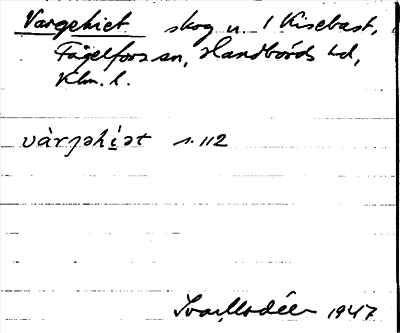 Vargehiet skog u. 1 Kisebast,
Fågelfors sn, Handbörds hd,
Klm. l.
vàrgəhi̲ət s. 112
Ivar Modéer 1947